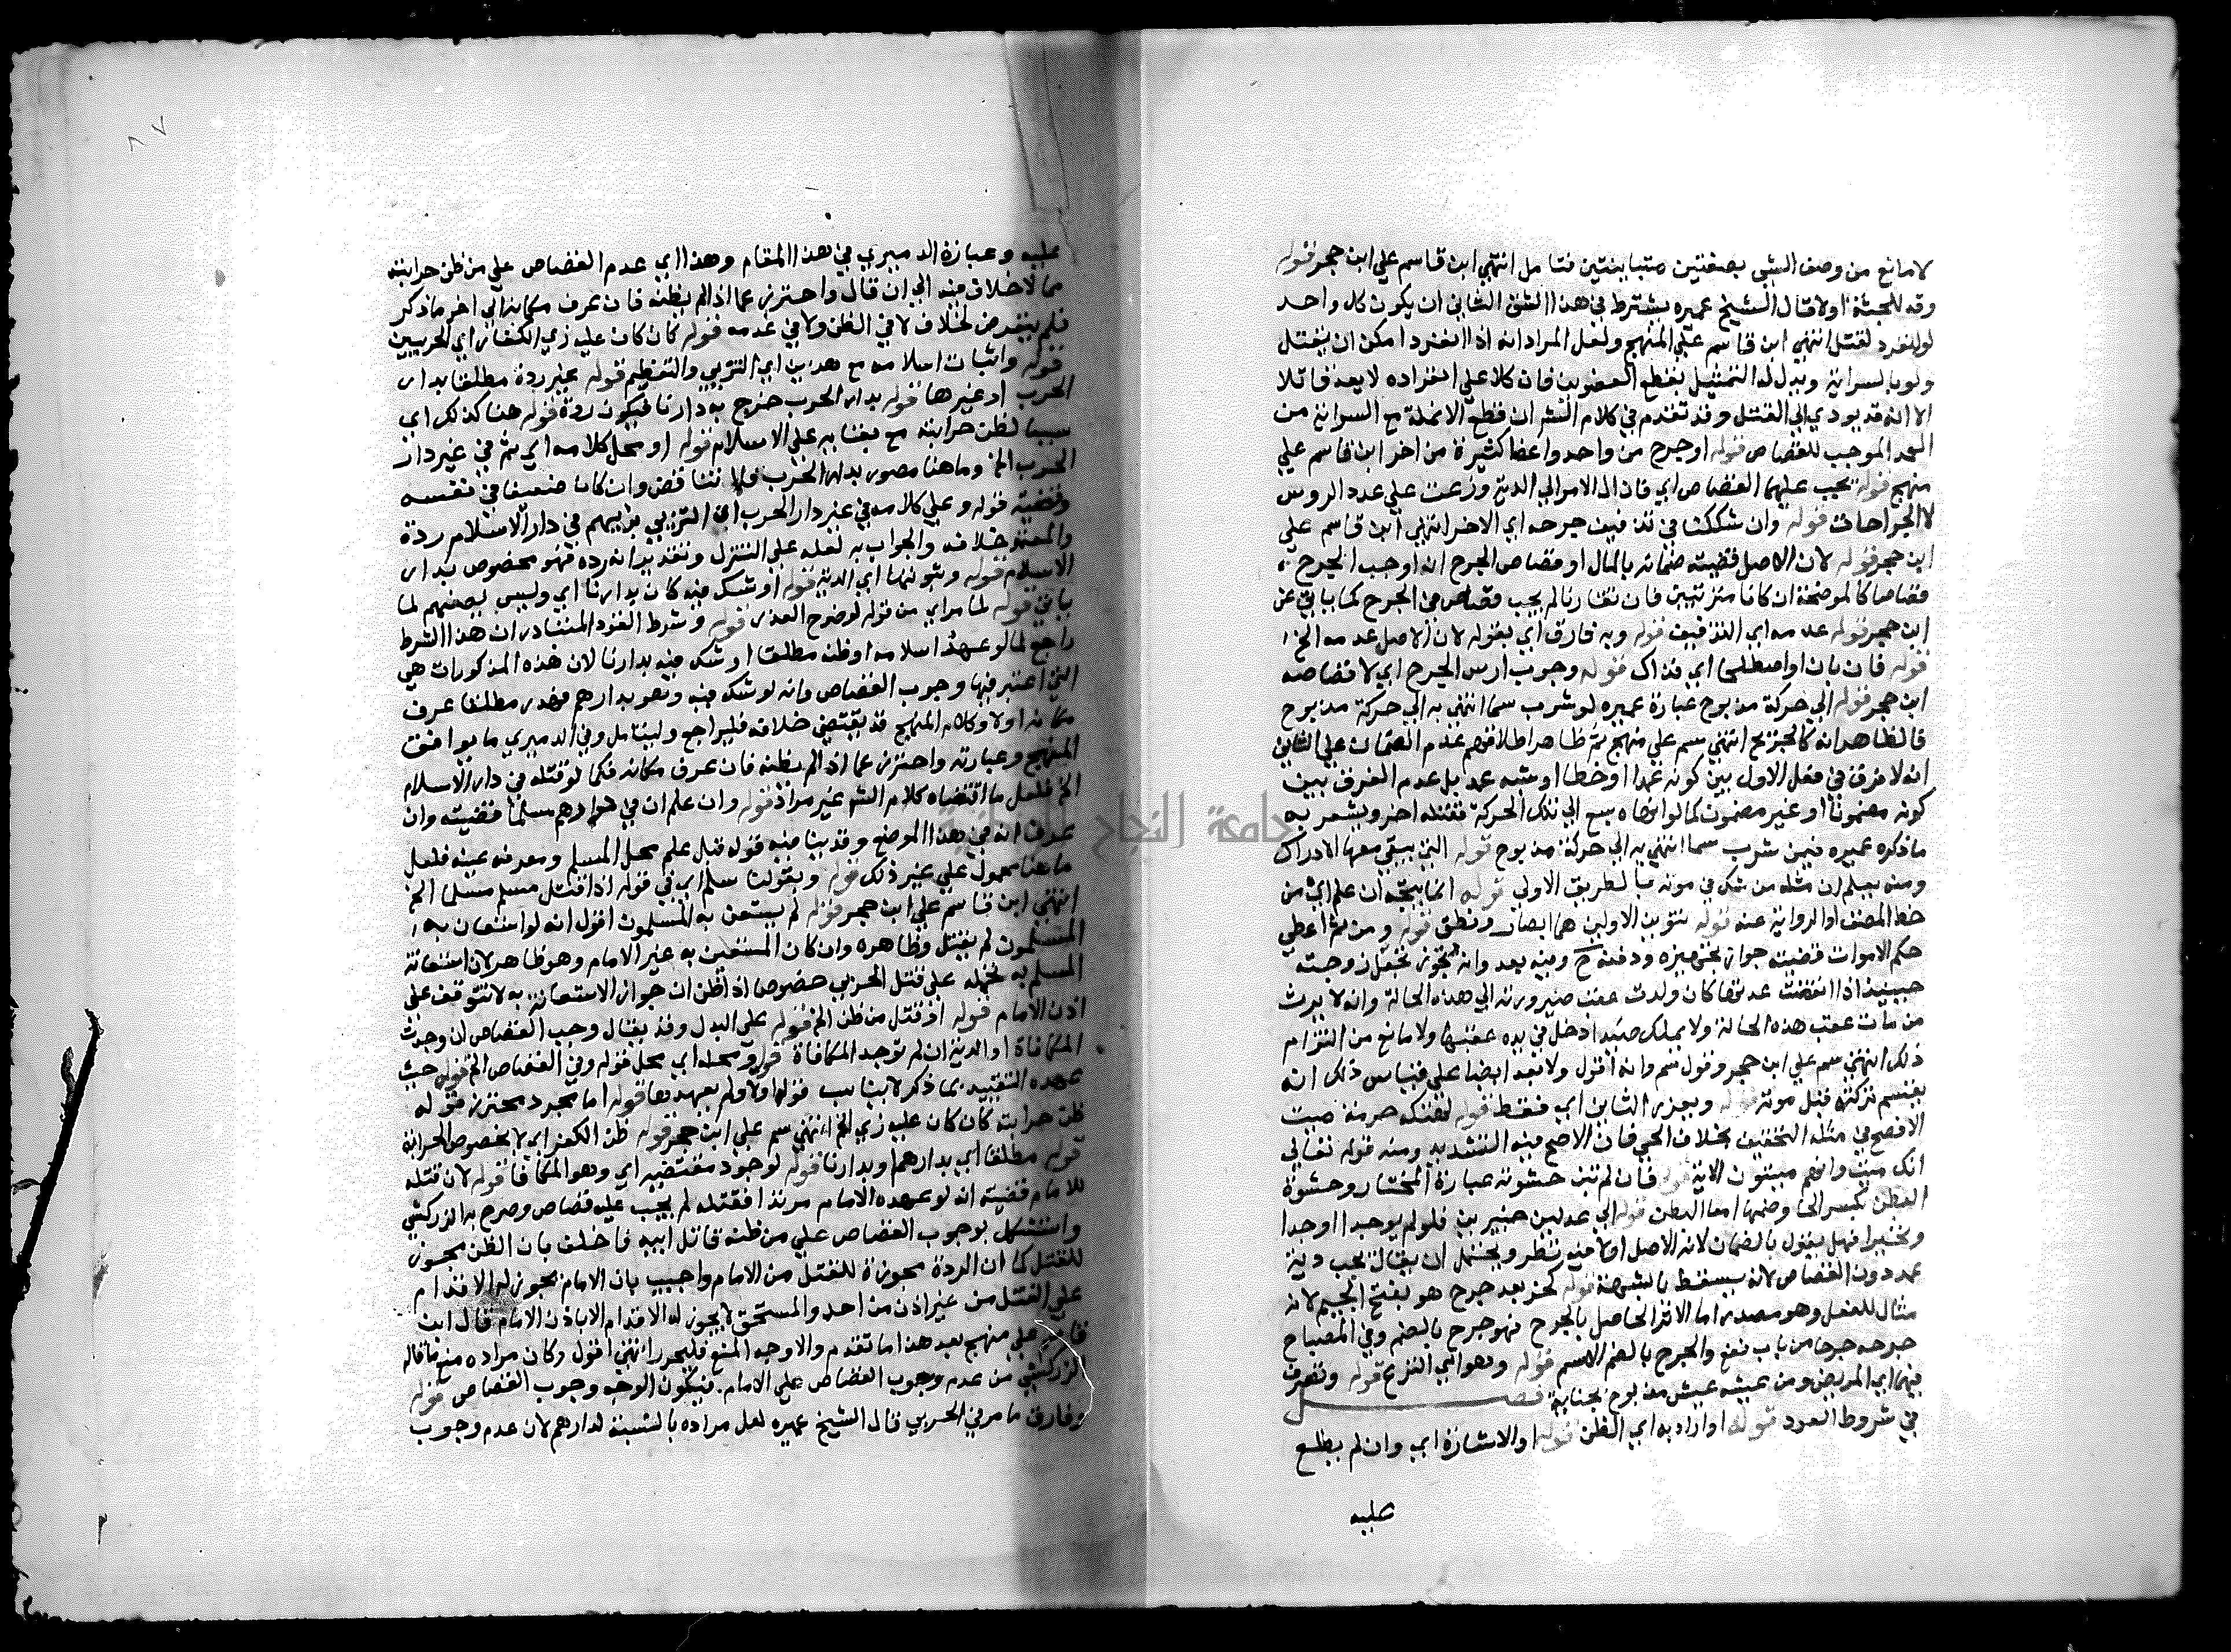 لا مانع من وصف الشي بصفتين متباينتين فتامل انتهى ابن قاسم علي ابن حجر قوله
وقد للجثة اولا قال الشيخ عميره يشترط في هذا الشق الثاني ان يكون كل واحد
لو انفرد لقتل انتهى ابن قاسم علي المنهج ولعل المراد انه اذا انفرد امكن ان يقتل
ولو بالسراية ويدل له التمثيل بقطع العضوين فان كلا علي انفراده لا يعد قاتلا
الا انه قد يودي الي القتل وقد تقدم في كلام الشر ان قطع الانملة مع السراية من
العمد الموجب للقصاص قوله او جرح من واحد واعضا كثيرة من اخر ابن قاسم علي
منهج قوله يجب عليهما القصاص اي فان ال الامر الي الدية وزعت علي عدد الروس
لا الجراحات قوله وان شككنا في تذفيف جرحه اي الاخر انتهى ابن قاسم علي
ابن حجر قوله لان الاصل قضيته ضمانه بالمال او قصاص الجرح ان اوجب الجرح
قصاصا كالموضحة ان كانا مترتبين فان تقارنا لم يجب قصاص في الجرح كما ياتي عن
ابن حجر قوله عدمه اي التذفيف قوله وبه فارق اي بقوله لان الاصل عدمه الخ
قوله فان بان او اصطلحا اي فذاك قوله وجوب ارش الجرح اي لا قصاصه
ابن حجر قوله الي حركة مذبوح عبارة عميره لو شرب سما انتهى به الي حركة مذبوح
فالظاهر انه كالجريح انتهى سم علي منهج ثم ظاهر اطلاقهم عدم الضمان علي الثاني
انه لا فرق في فعل الاول بين كونه عمدا او خطا او شبه عمد بل عدم الفرق بين
كونه مضمونا او غير مضمون كما لو انهاه سبع الي تلك الحركة فقتله اخر ويشعر به
ما ذكره عميره فيمن شرب سما انتهى به الي حركة مذبوح قوله التي يبقي معها الادراك
ومنه يعلم ان مثله من شك في موته بالطريق الاولي قوله انما يتجه ان علم اي من
خط المصنف او الرواية عنه قوله بتنوين الاولين هما ابصار ونطق قوله ومن ثم اعطي
حكم الاموات قضيته جواز تجهيزه ودفنه ح وفيه بعد وانه يجوز تزوج زوجته
حينيذ اذا انقضت عدتها كان ولدت عقب صيرورته الي هذه الحالة وانه لا يرث
من مات عقب هذه الحالة ولا يملك صيدا دخل في يده عقبها ولا مانع من التزام
ذلك انتهى سم علي ابن حجر وقول سم وانه اقول ولا بعد ايضا علي قياس ذلك انه
يقسم تركته قبل موته قوله ويعزر الثاني اي فقط قوله لهتكه حرمة ميت
الافصح في مثله التخفيف بخلاف الحي فان الاصح فيه التشديد ومنه قوله تعالي
انك ميت وانهم ميتون الاية قوله فان لم تبن حشوته عبارة المختار وحشوة
البطن بكسر الحا وضمها امعا البطن قوله الي عدلين خبيرين فلو لم يوجدا او وجدا
وتحيرا فهل يقول بالضمان لانه الاصل او لا فيه نظر ويحتمل ان يقال تجب دية
عمد دون القصاص لانه يسقط بالشبهة قوله كحز بعد جرح هو بفتح الجيم لانه
مثال للفعل وهو مصدر اما الاثر الحاصل بالجرح فهو جرح بالضم وفي المصباح
جرحه جرحا من باب نفع والجرح بالضم الاسم قوله وهو اي النزع قوله وتصرف
فيهما اي المريض ومن عيشه عيش مذبوح بجناية فصل
في شروط القود قوله او اراد به اي الظن قوله او الاشارة اي وان لم يطلع
عليه
٨٧
عليه وعبارة الدميري في هذا المقام وهذا اي عدم القصاص علي من ظن حرابته
مما لا خلاف فيه الي ان قال واحترز عما اذا لم يظنه فان عرف مكانه الي اخر ما ذكر
فلم يتعرض لخلاف لا في الظن ولا في عدمه قوله كان كان عليه زي الكفار اي الحربيين
قوله واثبات اسلامه مع هذين اي التزيي والتعظيم قوله غير ردة مطلقا بدار
الحرب او غيرها قوله بدار الحرب خرج به دارنا فيكون ردة قوله هنا كذلك اي
سببا لظن حرابته مع بقايه علي الاسلام قوله او محل كلامه اي ثم في غير دار
الحرب الخ وما هنا مصور بدار الحرب فلا تناقض وان كان ضعيفا في نفسه
وقضية قوله وعلي كلامه في غير دار الحرب ان التزيي بزيهم في دار الاسلام ردة
والمعتمد خلافه والجواب به لعله علي التنزل وتقديره انه ردة فهو مخصوص بدار
الاسلام قوله وثبوتها اي الدية قوله او شك فيه كان بدارنا اي وليس بصفهم لما
ياتي قوله لما مر اي من قوله لوضوح العذر قوله وشرط القود المتبادر ان هذا الشرط
راجع لما لو عهد اسلامه او ظنه مطلقا او شك فيه بدارنا لان هذه المذكورات هي
التي اعتبر فيها وجوب القصاص وانه لو شك فيه وهو بدارهم فهدر مطلقا عرف
مكانه اولا وكلام المنهج قد يقتضي خلافه فليراجع وليتامل وفي الدميري ما يوافق
المنهج وعبارته واحترز عما اذا لم يظنه فان عرف مكانه فكما لو قتله في دار الاسلام
الخ فلعل ما اقتضاه كلام الشر غير مراد قوله وان علم ان في دارهم مسلما قضيته وان
عرف انه في هذا الموضع وقد ينافيه قوله قبل علم محل المسلم ومعرفة عينه فلعل
ما هنا محمول علي غير ذلك قوله وبقولنا سلم اي في قوله اذا قتل مسلم مسلما الخ
انتهى ابن قاسم علي ابن حجر قوله لم يستعن به المسلمون اقول انه لو استعان به
المسلمون لم يقتل وظاهره وان كان المستعين به غير الامام وهو ظاهر لان استعانة
المسلم به تحمله علي قتل الحربي خصوصا اذا ظن ان جواز الاستعانة به لا تتوقف علي
اذن الامام قوله اذ قتل من ظن الخ قوله علي البدل وقد يقال وجب القصاص ان وجدت
المكافاة او الدية ان لم توجد المكافاة قوله ومحله اي محل قوله وفي القصاص الخ قوله حيث
عهده التقييد بما ذكر لا يناسب قوله اولا ولم يعهدها قوله اما مجرد محترز قوله
ظن حرابته كان كان عليه زي الخ انتهى سم علي ابن حجر قوله ظن الكفر اي لا بخصوص الحرابة
قوله مطلقا اي بدارهم او بدارنا قوله لوجود مقتضيه اي وهو المكافاة قوله لان قتله
للامام قضيته انه لو عهده الامام مرتدا فقتله لم يجب عليه قصاص وصرح به الزركشي
واستشكل بوجوب القصاص علي من ظنه قاتل ابيه فاخلف بان الظن مجوز
للقتل كما ان الردة مجوزة للقتل من الامام واجيب بان الامام يجوز له الاقدام
علي القتل من غير اذن من احد والمستحق لا يجوز له الاقدام الا باذن الامام قال ابن
قاسم علي منهج بعد هذا ما تقدم والاوجه المنع فليحرر انتهى اقول وكان مراده منع ما قاله
الزركشي من عدم وجوب القصاص علي الامام فيكون الوجه وجوب القصاص قوله
وفارق ما مر في الحربي قال الشيخ عميره لعل مراده بالنسبة لدارهم لان عدم وجوب
جامعة النجاح الوطنية